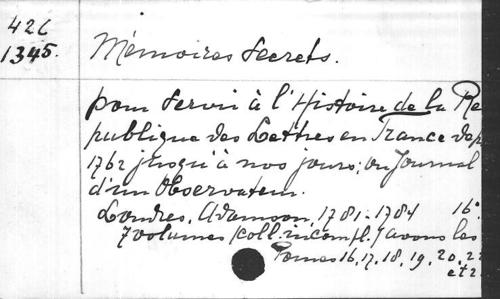 426
1345.
Mémoires Secrets.
pour servir à l'Histoire de la Re
publique des Lettres en France dep
1762 jusqu'à nos jours; ou Journal
d'un Observateur.
Londres, Adamson, 1781-1784 16°.
7 volumes (coll. incompl.) avons les
Tomes 16, 17, 18, 19, 20, 22
et 2